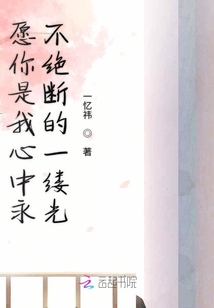 愿你是我心中永
不绝断的一缕光
一忆祎 ◎ 著
云起书院